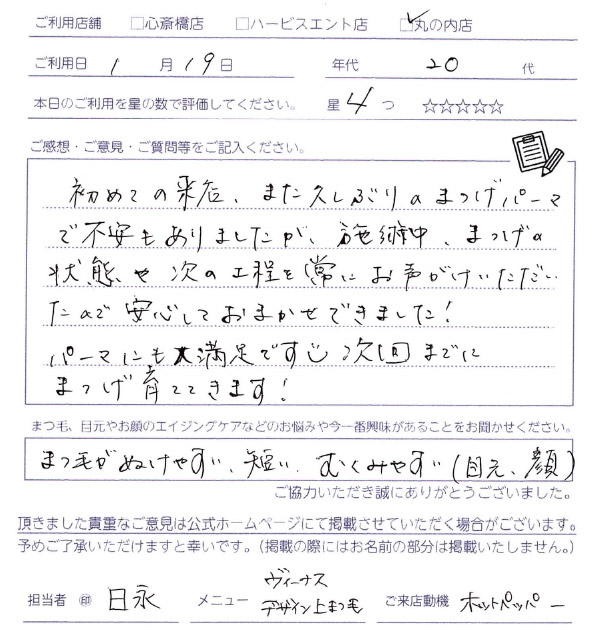 ご利用店舗 □心斎橋店 □ハービスエント店 ☑丸の内店
ご利用日 1 月 19 日 年代 20 代
本日のご利用を星の数で評価してください。 星 4 つ ☆☆☆☆☆
ご感想・ご意見・ご質問等をご記入ください。
初めての来店、また久しぶりのまつげパーマ
で不安もありましたが、施術中、まつげの
状態や次の工程を常にお声がけいただい
たので安心しておまかせできました!
パーマにも大満足です 次回までに
まつげ育ててきます!
まつ毛、目元やお顔のエイジングケアなどのお悩みや今一番興味があることをお聞かせください。
まつ毛がぬけやすい、短い、むくみやすい(目元、顔)
ご協力いただき誠にありがとうございました。
頂きました貴重なご意見は公式ホームページにて掲載させていただく場合がございます。
予めご了承いただけますと幸いです。(掲載の際にはお名前の部分は掲載いたしません。)
担当者 ㊞ 日永 メニュー ヴィーナス デザイン上まつ毛 ご来店動機 ホットペッパー